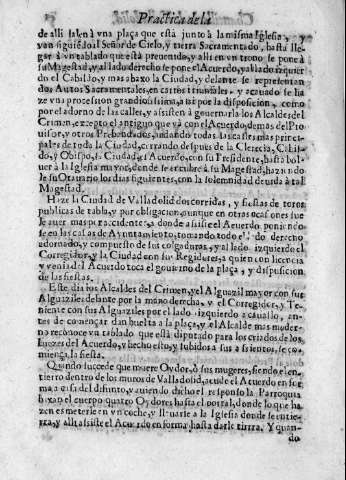 Practica de la
de alli salen à vna plaça que está junto à la misma Iglesia, y
van siguiẽdo al Señor de Cielo, y tierra Sacramentado, hasta lle-
gar à vn tablado que está preuenido, y alli en vn trono se pone à
su Magestad, y al lado derecho se pone el Acuerdo, y al lado izquier
do el Cabildo, y mas abaxo la Ciudad, y delante se representan
dos Autos Sacramentales, en carros triunfales, y acauado se ha
ze vna procession grandiosissima, assi por la disposicion, como
por el adorno de las calles, y assisten à gouernarla los Alcaldes del
Crimen, excepto el antiguo que và con el Acuerdo, demas del Pro
uisor, y otros Prebendados, andando todas las calles mas princi-
pales de toda la Ciudad, cerrando despues de la Clerecia, Cabil-
do, y Obispo, la Ciudad, y Acuerdo, con su Presidente, hasta bol-
uer à la Iglesia mayor, donde se encubre à su Magestad, hazando
le su Otauario los dias siguientes, con la solemnidad deuida à tal
Magestad.
Haze la Ciudad de Valladolid dos corridas, y fiestas de toros
publicas de tabla, y por obligacion, aunque en otras ocasiones sue
le auer mas por accidente, à donde assiste el Acuerdo poniendo-
se en las casas de Ayuntamiento, tomando todo el lado derecho
adornado, y compuesto de sus colgaduras, y al lado izquierdo el
Corregidor, y la Ciudad con sus Regidores, à quien con licencia
y venia del Acuerdo toca el gouierno de la plaça, y disposicion
de las fiestas.
Este dia los Alcaldes del Crimen, y el Alguazil mayor con sus
Alguaziles delante por la mano derecha, y el Corregidor, y Te-
niente con sus Alguaziles por el lado izquierdo à cauallo, an-
tes de començar dan buelta a la plaça, y el Alcalde mas moder-
no reconoce vn tablado que està diputado para los criados de los
Iuezes del Acuerdo, y hecho esto, y subidos à sus assientos, se co-
miença la fiesta.
Quando succede que muere Oydor, ò sus mugeres, siendo el en-
tierro dentro de los muros de Valladolid, acude el Acuerdo en for
ma a casa del difunto, y auiendo dicho el responso la Parroquia
baxan el cuerpo quatro Oydores hasta el portal, donde lo que ha-
zen es meterle en vn coche, y lleuarle a la Iglesia donde se entie-
rra, y alli assiste el Acuerdo en forma hasta darle tierra. Y quan-
do